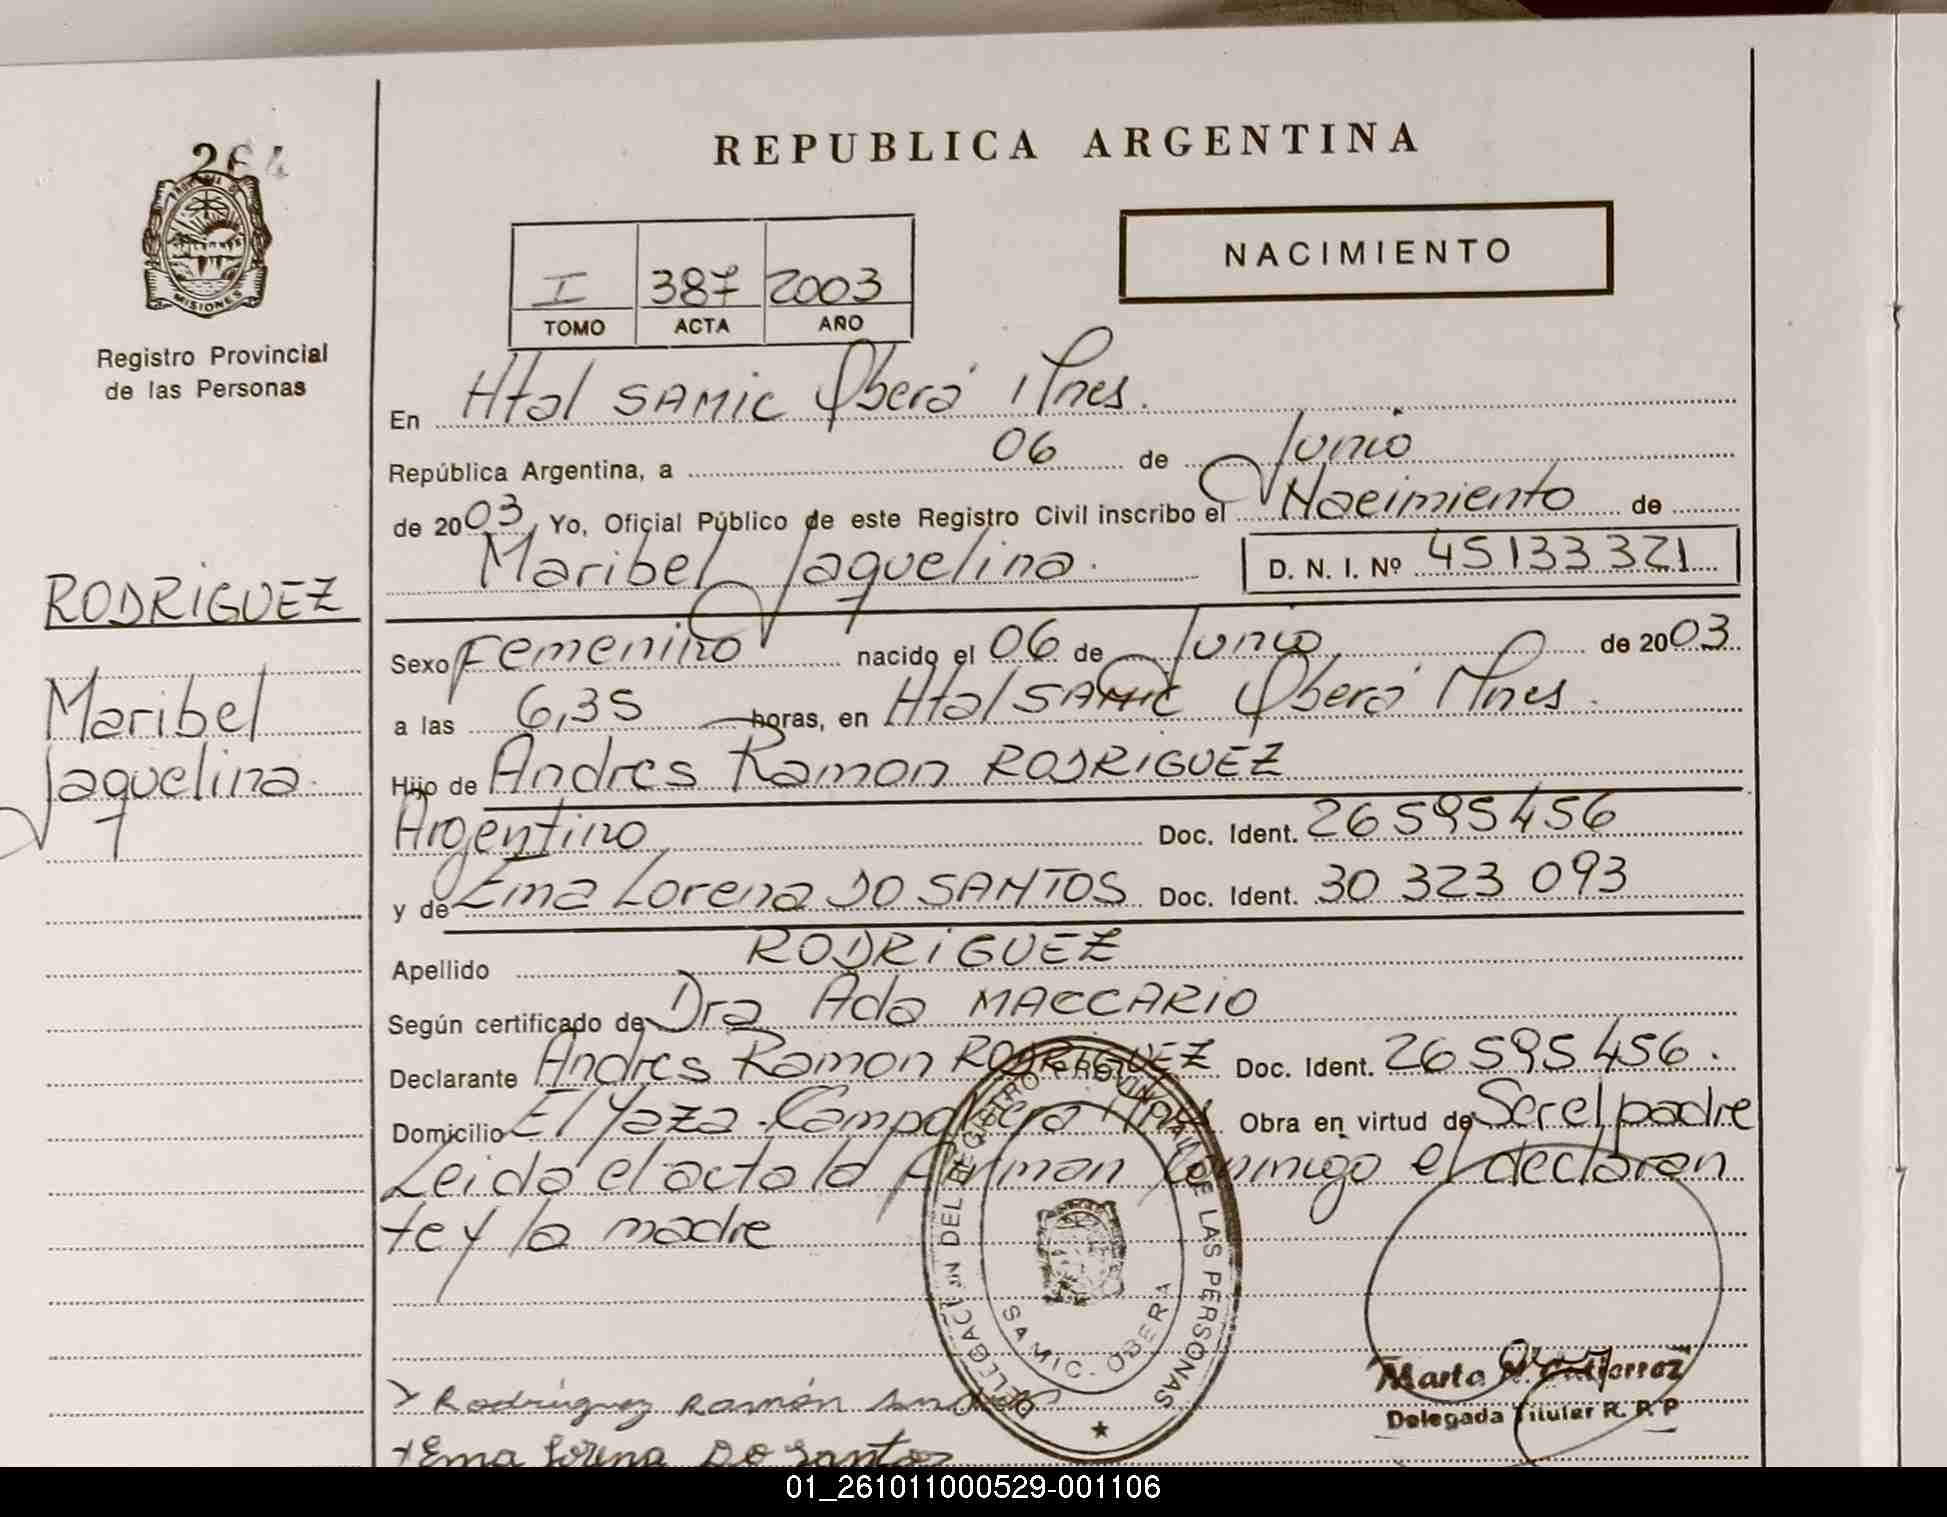 264
MISIONES
Registro Provincial
de las Personas
RODRIGUEZ
Maribel
Jaquelina.
REPUBLICA ARGENTINA
I 387 2003
TOMO ACTA AÑO
NACIMIENTO
En Htal SAMIC Oberá Mnes.
República Argentina, a 06 de Junio
de 2003, Yo, Oficial Público de este Registro Civil inscribo el Nacimiento de
Maribel Jaquelina. D. N. I. Nº 45133321
Sexo Femenino nacido el 06 de Junio de 2003
a las 6,35 horas, en Htal SAMIC Oberá Mnes.
Hijo de Andres Ramon RODRIGUEZ
Argentino Doc. Ident. 26 595 456
y de Ema Lorena DO SANTOS Doc. Ident. 30 323 093
Apellido RODRIGUEZ
Según certificado de Dra Ada MACCARIO
Declarante Andres Ramon RODRIGUEZ Doc. Ident. 26 595 456.
Domicilio El Yaza. Campo Viera Mnes Obra en virtud de Ser el padre
Leida el acta la firman conmigo el declaran
te y la madre
DELEGACION DEL REGISTRO PROVINCIAL DE LAS PERSONAS
SAMIC. OBERA
Rodriguez Ramón
Marta N. Gutierrez
Delegada Titular R. P. P
Ema Lorena Do Santos
01_261011000529-001106